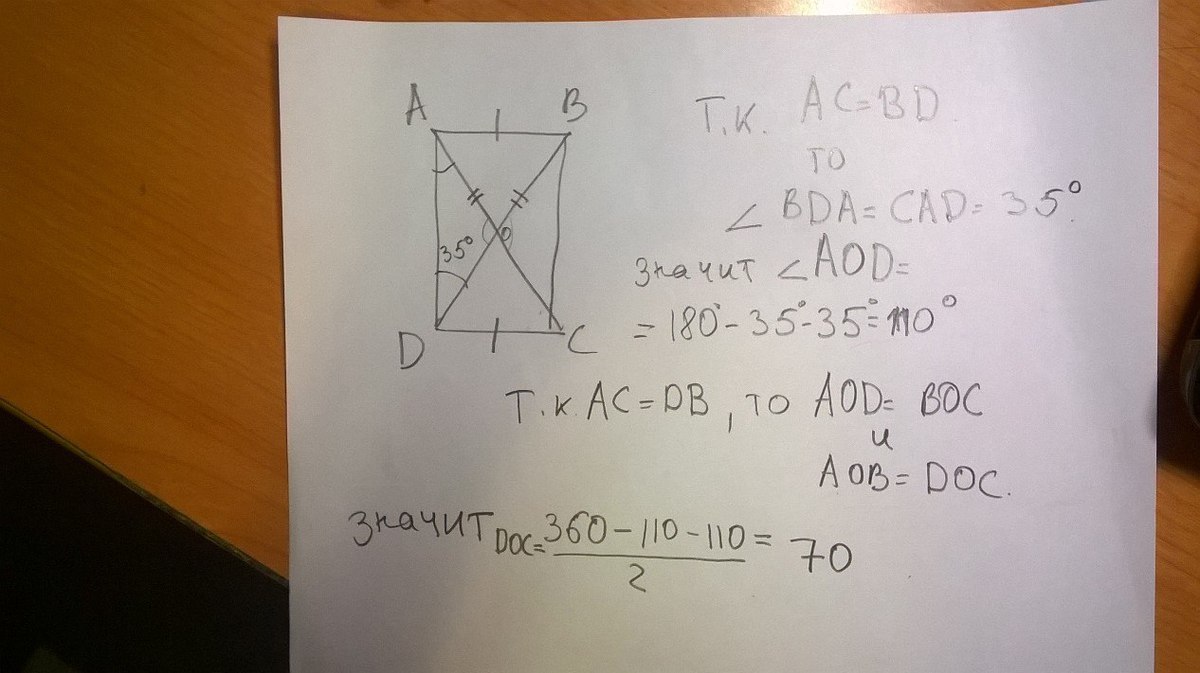 A B
35° O
D C
Т.к. AC=BD.
то
∠ BDA = CAD = 35°.
значит ∠AOD=
= 180°-35°-35°=110°
Т.к. AC=DB, то AOD= BOC
и
AOB= DOC.
значит DOC= 360-110-110 = 70
2